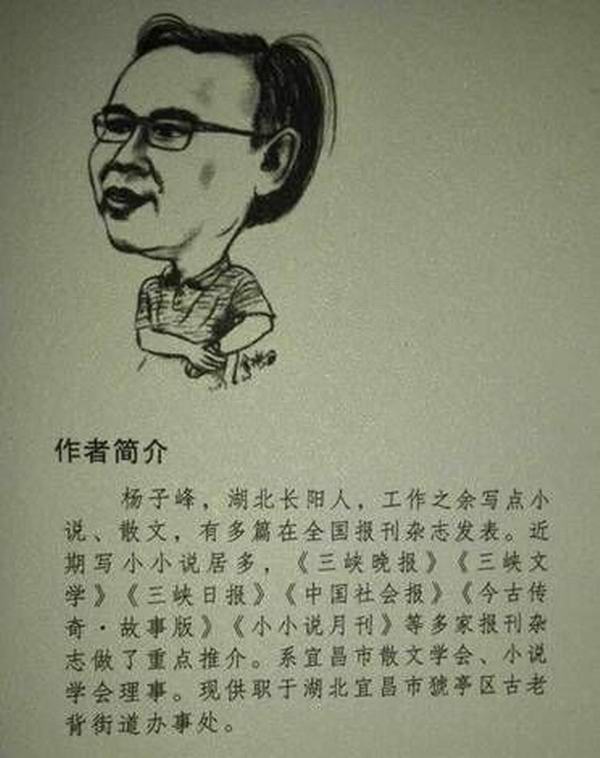 作者简介
杨子峰，湖北长阳人，工作之余写点小
说、散文，有多篇在全国报刊杂志发表。近
期写小小说居多，《三峡晚报》《三峡文
学》《三峡日报》《中国社会报》《今古传
奇·故事版》《小小说月刊》等多家报刊杂
志做了重点推介。系宜昌市散文学会、小说
学会理事。现供职于湖北宜昌市猇亭区古老
背街道办事处。